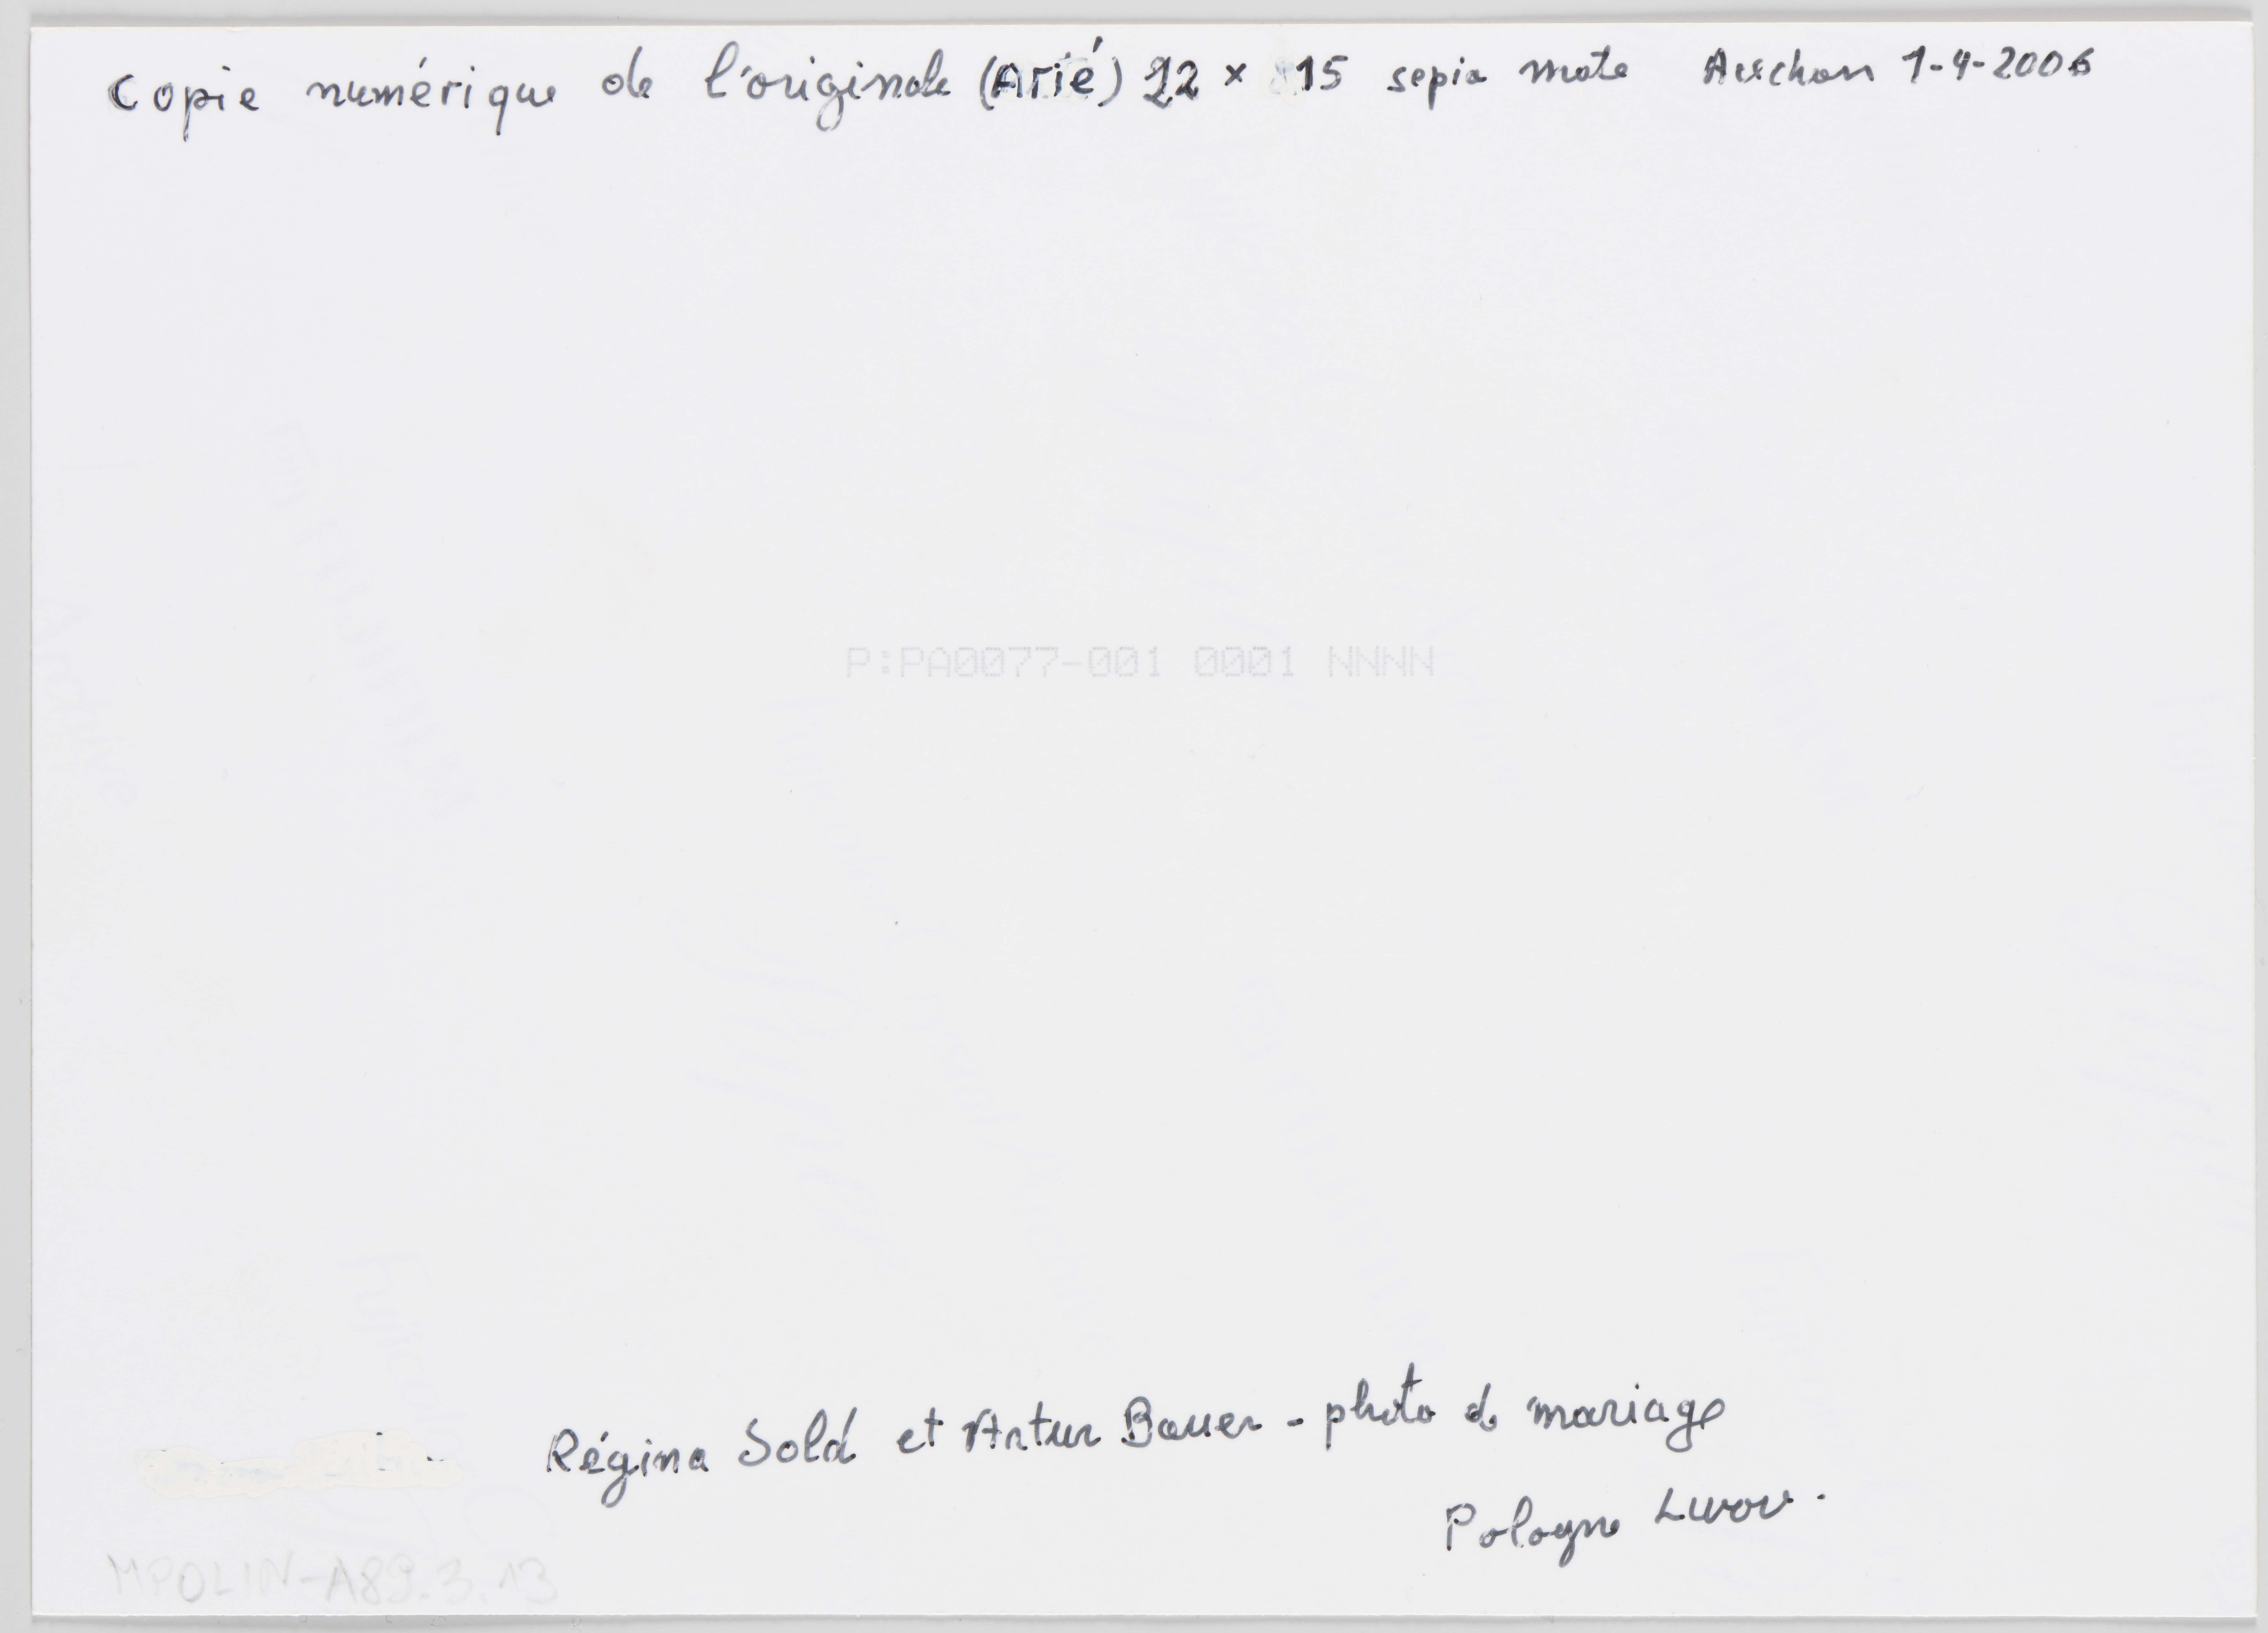 Copie numérique de l'originale (Arié) 22 × 15 sepia mate Auchan 1-4-2006
P:PA0077-001 0001 NNNN
Régina Sold et Artur Bauer - photo de mariage
Pologne Lwow.
MPOLIN-A89.3.13